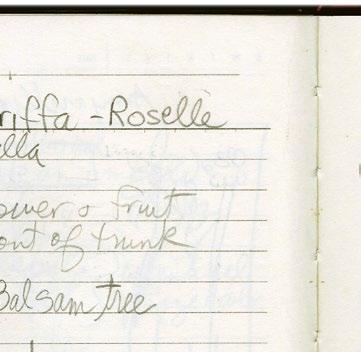 riffa - Roselle
lla
ower & fruit
ont of trunk
Balsam tree